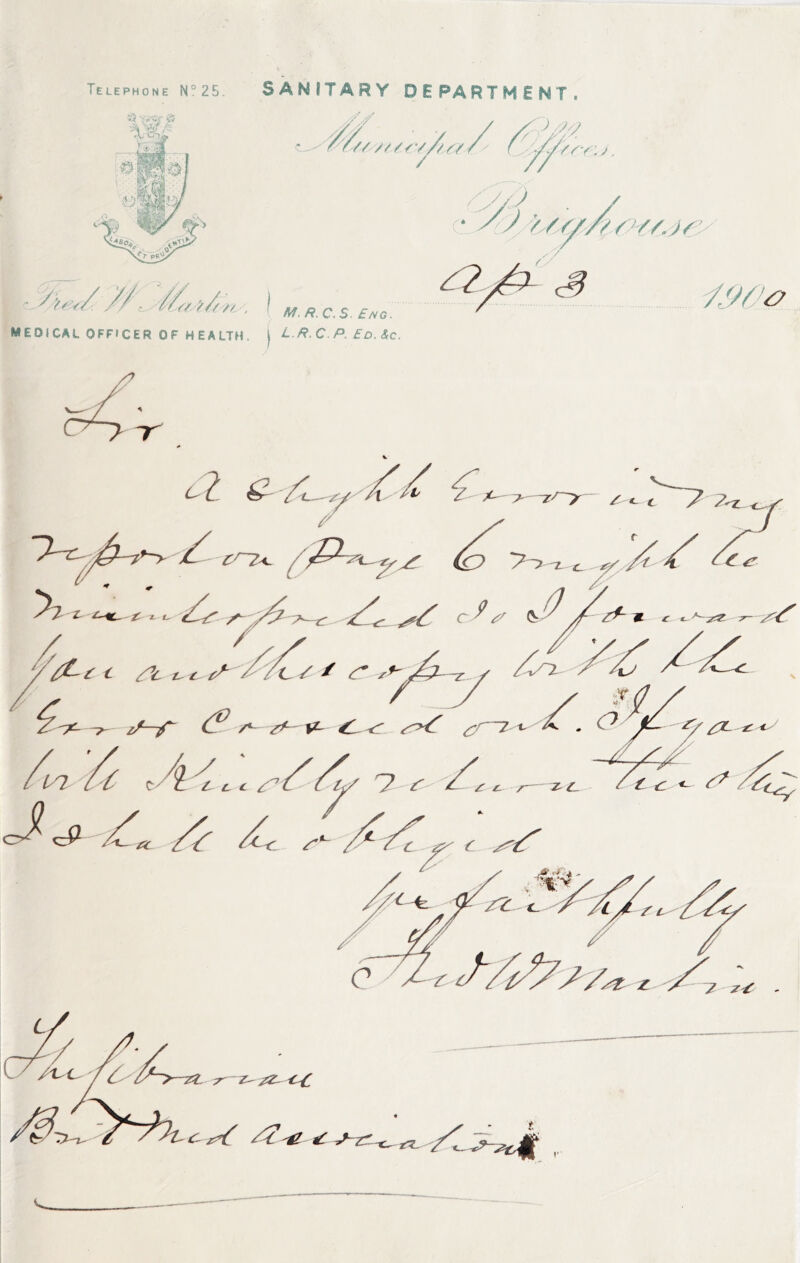 TELEPHONE Nº 25.
SANITARY DEPARTMENT.
Municipal Offices,
Brighouse
LABORE ET PRUDENTIA
Ap 3 1900
Fred. W Martin,
M.R.C.S. ENG.
MEDICAL OFFICER OF HEALTH.
L.R.C.P. ED. &c.
Sir
A slight Error in my
report on Page 6 might be
misinterpreted so I forward
you another copy with the
Error Crossed out. If you
will Kindly return the other
I shall be obliged
Yrs faithfully
Fred W Martin.
The Librarian
Brit Med Association.